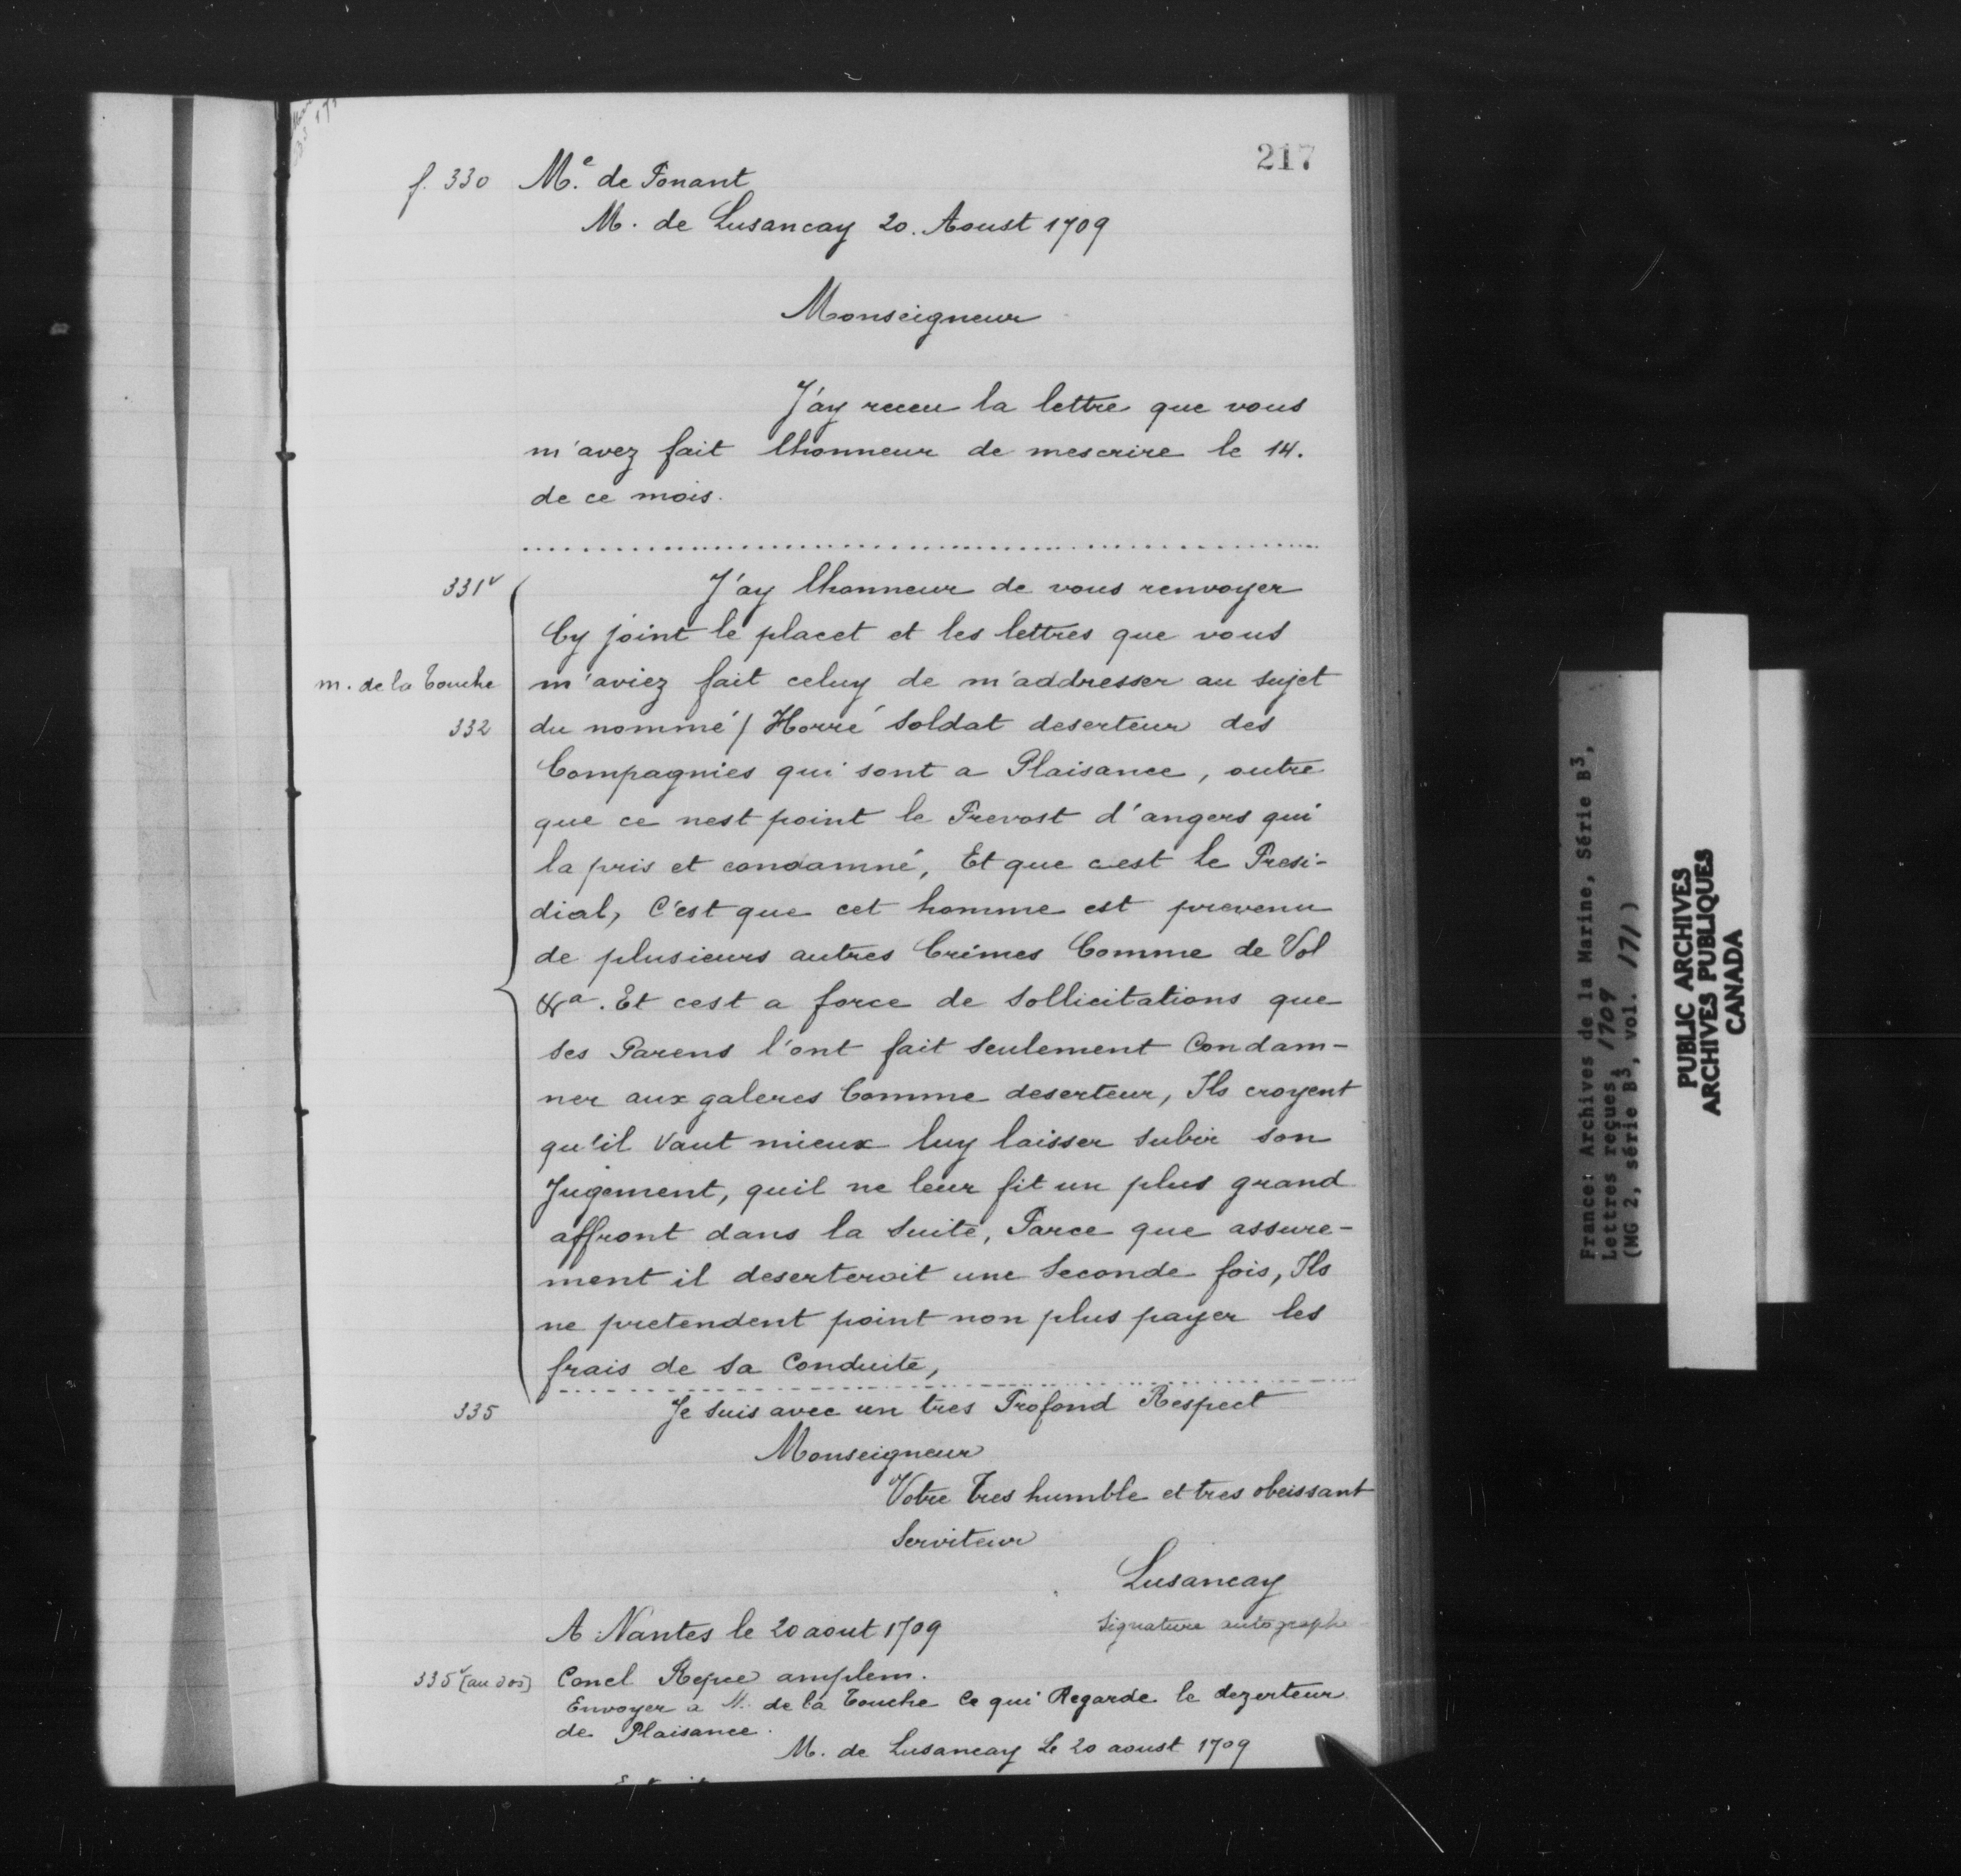 217
f. 330 M.e de Ponant
M. de Lusancay 20. Aoust 1709
Monseigneur
J'ay receu la lettre que vous
m'avez fait lhonneur de mescrire le 14.
de ce mois.
331v J'ay lhonneur de vous renvoyer
Cy joint le placet et les lettres que vous
m. de la Touche m'aviez fait celuy de m'addresser au sujet
332 du nommé / Horré soldat deserteur des
Compagnies qui sont a Plaisance, outre
que ce nest point le Prevost d'angers qui
la pris et condamné, Et que cest le Presi-
dial, C'est que cet homme est prevenu
de plusieurs autres Crimes Comme de Vol
&a. Et cest a force de sollicitations que
ses Parens l'ont fait seulement Condam-
ner aux galeres Comme deserteur, Ils croyent
qu'il vaut mieux luy laisser subir son
Jugement, quil ne leur fit un plus grand
affront dans la suite, Parce que assure-
ment il deserteroit une seconde fois, Ils
ne pretendent point non plus payer les
frais de sa Conduite,
335 Je suis avec un tres Profond Respect
Monseigneur
Votre Tres humble et tres obeissant
Serviteur
Lusancay
A Nantes le 20 aout 1709 signature autographe
335v (au dos) Concl Repce amplem.
Envoyer a M. de la Touche Ce qui Regarde le dezerteur
de Plaisance.
M. de Lusancay Le 20 aoust 1709
France: Archives de la Marine, Série B3,
Lettres reçues, 1709
(MG 2, série B3, vol. 171)
PUBLIC ARCHIVES
ARCHIVES PUBLIQUES
CANADA